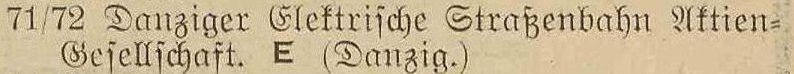 71/72 Danziger Elektrische Straßenbahn Aktien=
Gesellschaft. E (Danzig.)